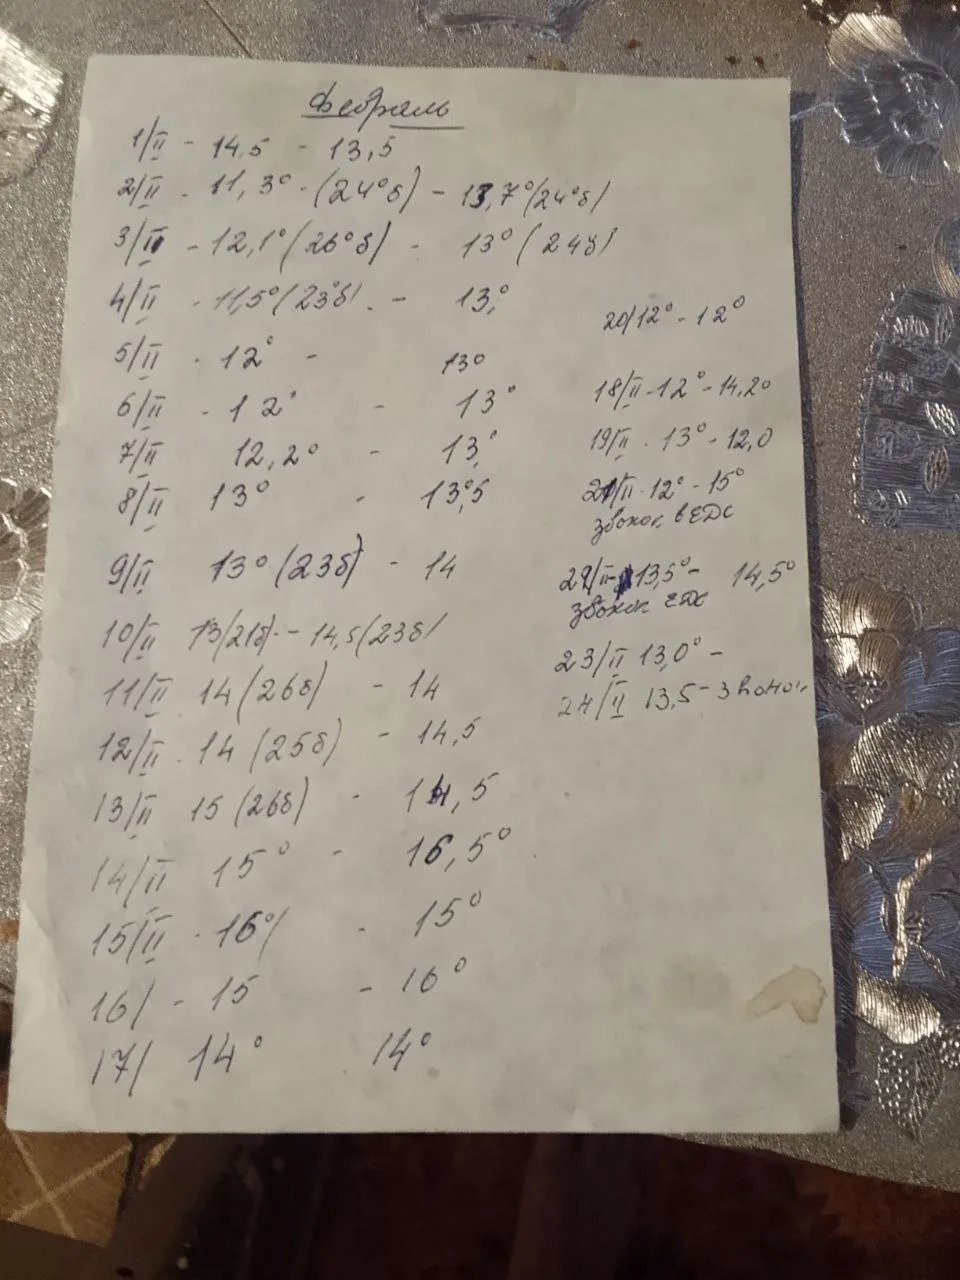 Февраль
1/II - 14,5 - 13,5
2/II - 11,3° - (24°б) - 13,7°(24°б)
3/II - 12,1° (26°б) - 13° (24б)
4/II - 11,5° (23°б) - 13,°
5/II - 12° - 13°
6/II - 12° - 13°
7/II 12,2° - 13,°
8/II 13° - 13°,5
9/II 13° (23б) - 14
10/II 13 (21б) - 14,5 (23б)
11/II 14 (26б) - 14
12/II - 14 (25б) - 14,5
13/II 15 (26б) - 14,5
14/II 15° - 16,5°
15/II - 16°/ - 15°
16/ - 15 - 16°
17/ 14° 14°
20/12° - 12°
18/II - 12° - 14,2°
19/II - 13° - 12,0
21/II - 12° - 15°
звонок в ЕДС
22/II - 13,5° - 14,5°
звонок ЕДС
23/II 13,0° -
24/II 13,5 - звонок